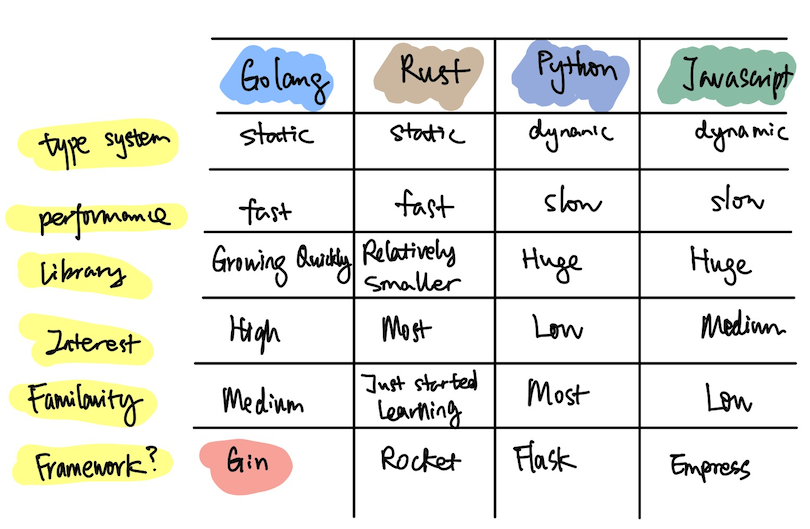 Golang Rust Python Javascript
type system static static dynamic dynamic
performance fast fast slow slow
Library Growing Quickly Relatively Smaller Huge Huge
Interest High Most Low Medium
Familarity Medium Just started Learning Most Low
Framework? Gin Rocket Flask Empress